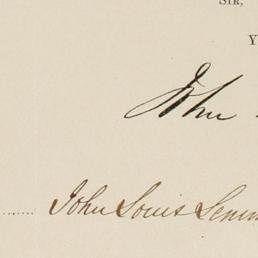 SIR,
Y
John
John Louis